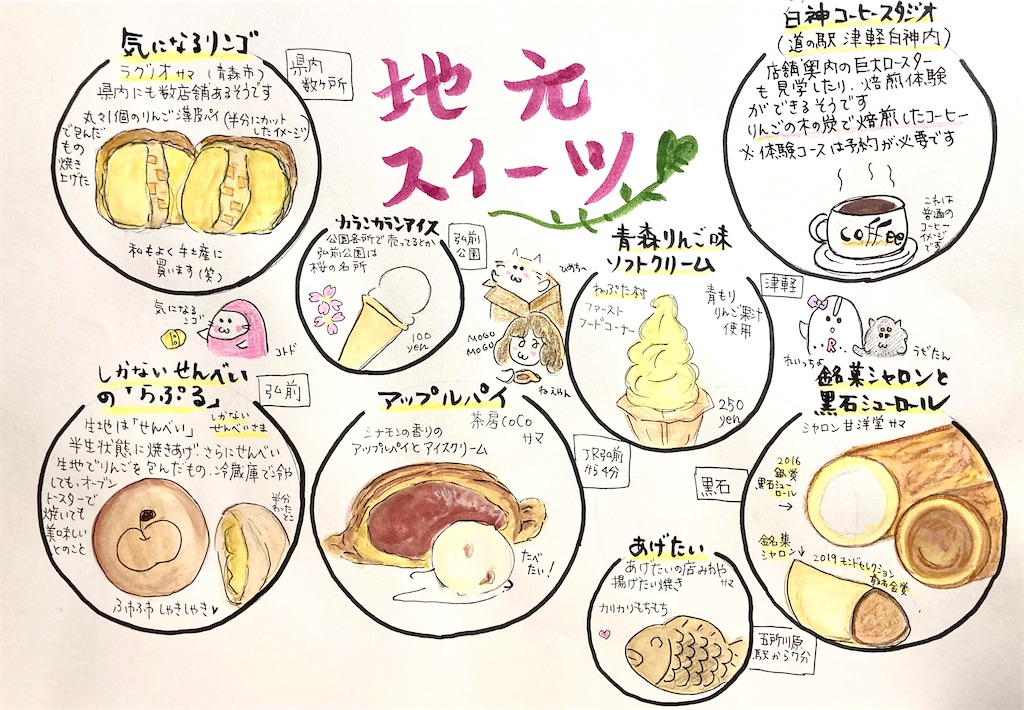 地元
スイーツ
気になるリンゴ
ラグノオサマ (青森市)
県内にも数店舗あるそうです
丸々1個のりんご薄皮パイ
で包んだ
もの
焼き
上げた
(半分にカット
したイメージ)
私もよく手土産に
買います(笑)
県内
数ヶ所
気になる
リンゴ
コトド
カランカランアイス
公園各所で売ってるとか
弘前公園は
桜の名所
100
yen
弘前
公園
ひめちー
MOGO
MOGO
ねえやん
白神コーヒースタジオ
(道の駅 津軽白神内)
店舗奥内の巨大ロースター
も見学したり、焙煎体験
ができるそうです
りんごの木の炭で焙煎したコーヒー
※体験コースは予約が必要です
coffee
これは
普通の
コーヒー
イメージ
です
青森りんご味
ソフトクリーム
ねぷた村
ファースト
フードコーナー
青もり
りんご果汁
使用
250
yen
津軽
R
れいっちょ
うどたん
しかないせんべい
の「らぷる」
弘前
しかない
せんべいさま
生地は「せんべい」
半生状態に焼きあげ、さらにせんべい
生地でりんごを包んだもの、冷蔵庫で冷や
しても、オーブン
トースターで
焼いても
美味しい
とのこと
半分
わった
とこ
ふわふわ しゃきしゃき♥
アップルパイ
茶房CoCo
サマ
シナモンの香りの
アップルパイとアイスクリーム
たべ
たい!
JR弘前
から4分
あげたい
あげたいの店みわや
サマ
揚げたい焼き
カリカリもちもち
五所川原
駅から7分
銘菓シャロンと
黒石シューロール
黒石
シャロン甘洋堂サマ
2016
銀賞
黒石シュー
ロール
→
銘菓
シャロン↓
2019 モンドセレクション
最高金賞